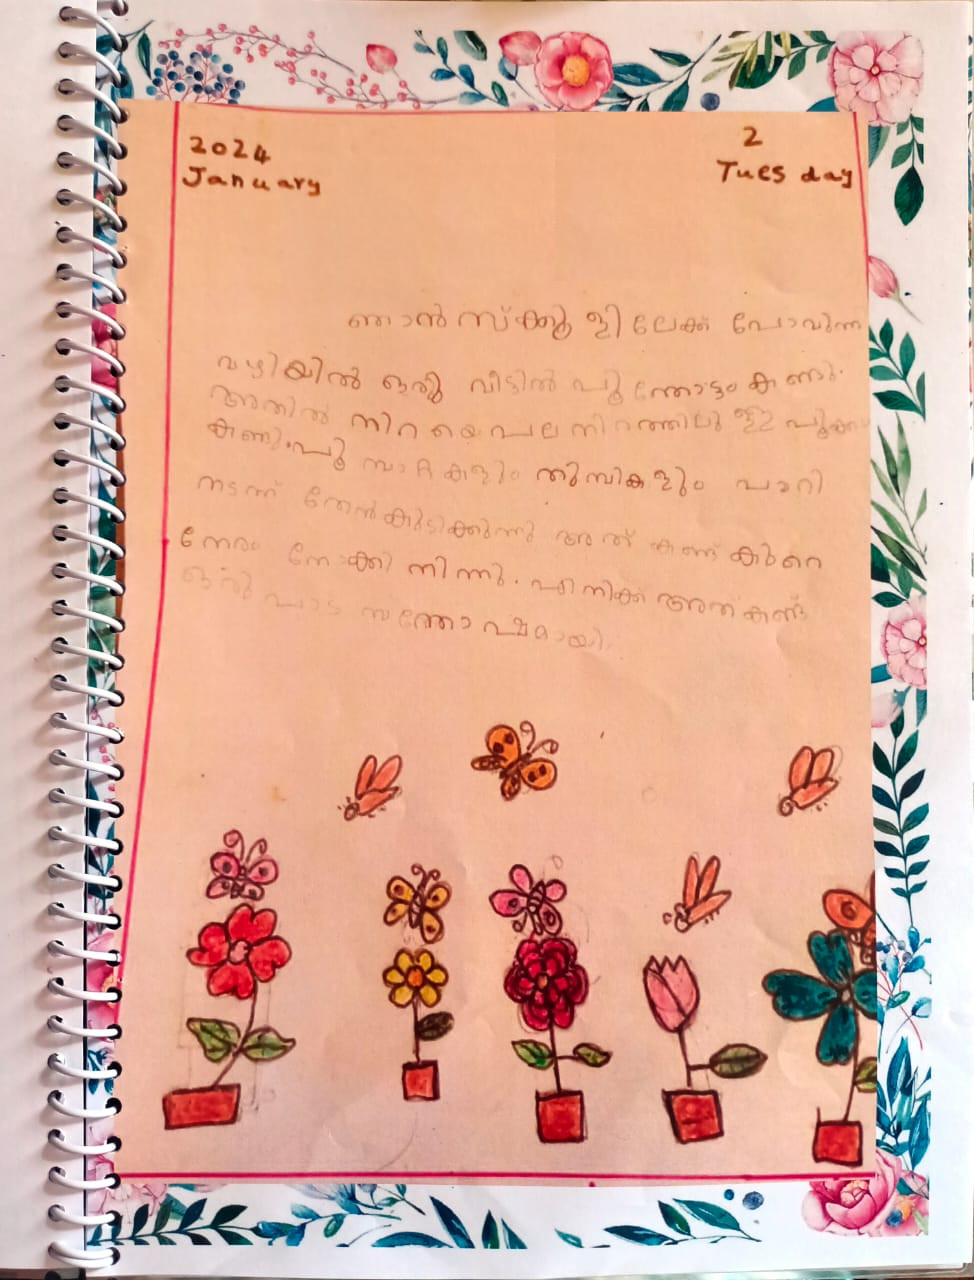 2024
2
January
Tues day
ഞാൻ സ്ക്കൂളിലേക്ക് പോവുന്ന
വഴിയിൽ ഒരു വീട്ടിൽ പൂന്തോട്ടം കണ്ടു.
അതിൽ നിറയെ പല നിറത്തിലുള്ള പൂക്കൾ
കണ്ടു. പൂമ്പാറ്റകളും തുമ്പികളും പാറി
നടന്ന് തേൻ കുടിക്കുന്നു അത് കണ്ട് കുറെ
നേരം നോക്കി നിന്നു. എനിക്ക് അത് കണ്ട്
ഒരു പാട് സന്തോഷമായി.